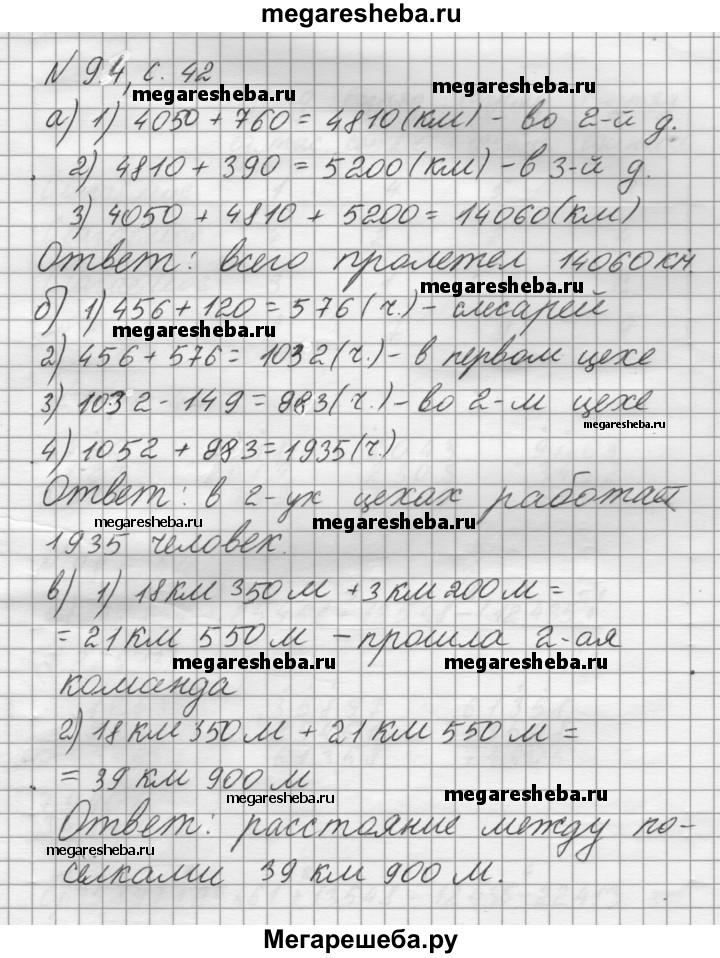 megaresheba.ru
N 94, с. 42
megaresheba.ru
megaresheba.ru
а) 1) 4050 + 760 = 4810 (км) - во 2-й д.
2) 4810 + 390 = 5200 (км) - в 3-й д.
3) 4050 + 4810 + 5200 = 14060 (км)
Ответ: всего пролетел 14060 км
megaresheba.ru
б) 1) 456 + 120 = 576 (ч.) - слесарей
megaresheba.ru
2) 456 + 576 = 1032 (ч.) - в первом цехе
3) 1032 - 149 = 883 (ч.) - во 2-м цехе
megaresheba.ru
4) 1052 + 883 = 1935 (ч.)
Ответ: в 2-ух цехах работает
megaresheba.ru
megaresheba.ru
1935 человек.
в) 1) 18 км 350 м + 3 км 200 м =
= 21 км 550 м - прошла 2-ая
megaresheba.ru
megaresheba.ru
команда
2) 18 км 350 м + 21 км 550 м =
= 39 км 900 м
megaresheba.ru
megaresheba.ru
Ответ: расстояние между по-
megaresheba.ru
селками 39 км 900 м.
Мегарешеба.ру